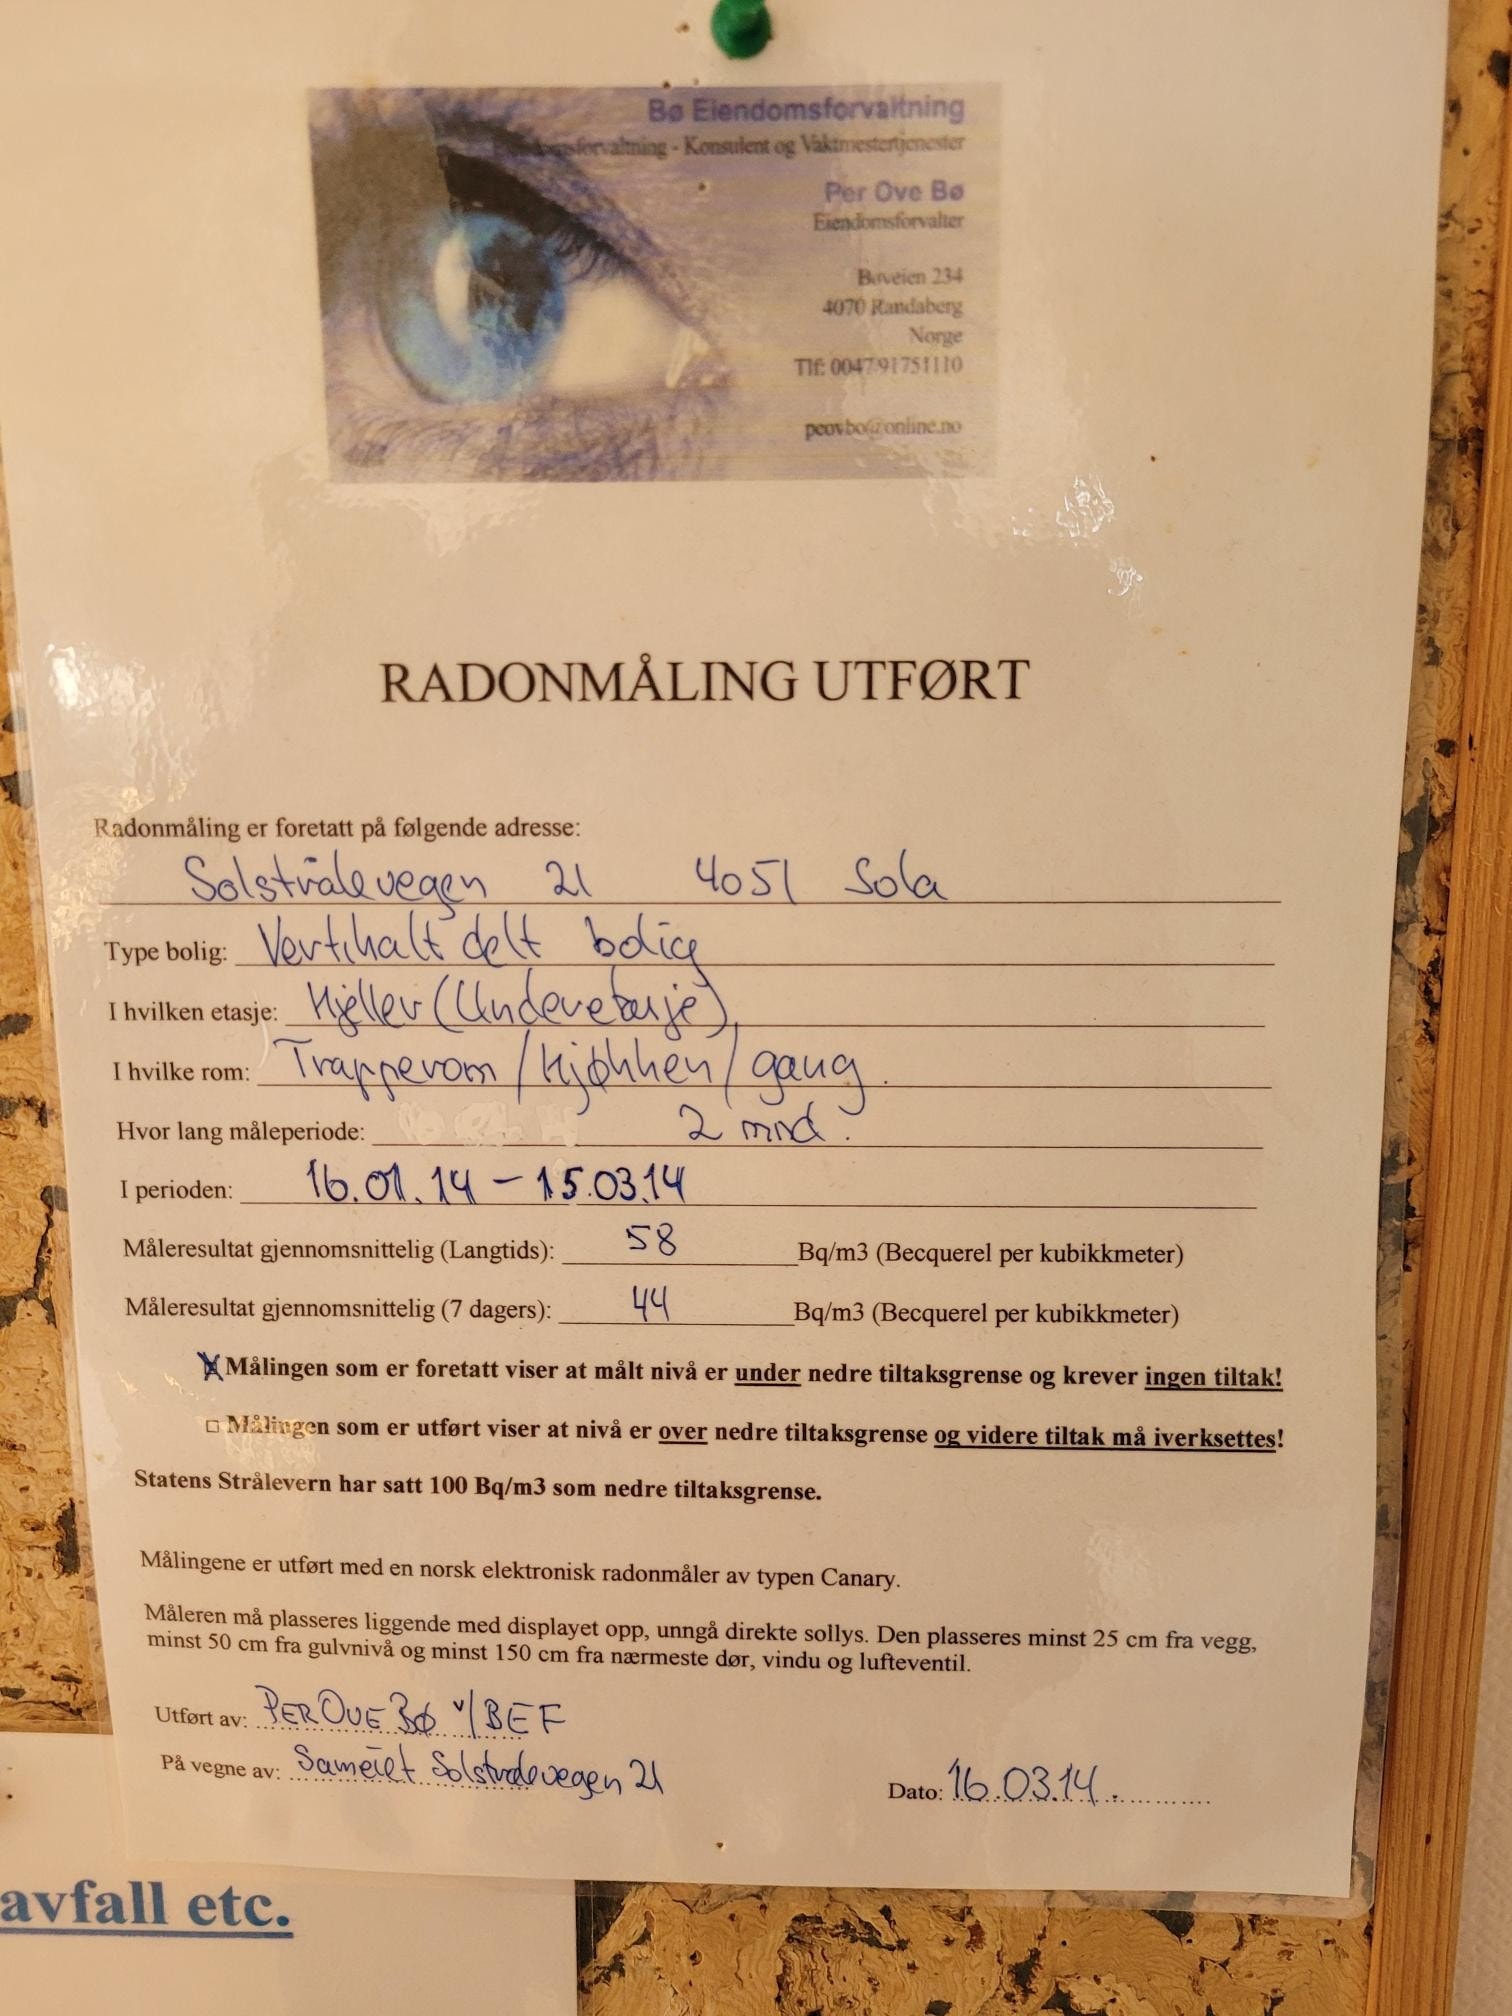 Bø Eiendomsforvaltning
Eiendomsforvaltning - Konsulent og Vaktmestertjenester
Per Ove Bø
Eiendomsforvalter
Bøveien 234
4070 Randaberg
Norge
Tlf: 004791751110
peovbo@online.no
RADONMÅLING UTFØRT
Radonmåling er foretatt på følgende adresse:
Solstrålevegen 21 4051 Sola
Type bolig: Vertikalt delt bolig
I hvilken etasje: Kjeller (Underetasje)
I hvilke rom: Trapperom/Kjøkken/gang.
Hvor lang måleperiode: 2 mnd.
I perioden: 16.01.14 - 15.03.14
Måleresultat gjennomsnittelig (Langtids): 58 Bq/m3 (Becquerel per kubikkmeter)
Måleresultat gjennomsnittelig (7 dagers): 44 Bq/m3 (Becquerel per kubikkmeter)
X Målingen som er foretatt viser at målt nivå er under nedre tiltaksgrense og krever ingen tiltak!
□ Målingen som er utført viser at nivå er over nedre tiltaksgrense og videre tiltak må iverksettes!
Statens Strålevern har satt 100 Bq/m3 som nedre tiltaksgrense.
Målingene er utført med en norsk elektronisk radonmåler av typen Canary.
Måleren må plasseres liggende med displayet opp, unngå direkte sollys. Den plasseres minst 25 cm fra vegg,
minst 50 cm fra gulvnivå og minst 150 cm fra nærmeste dør, vindu og lufteventil.
Utført av: PER OVE BØ v/BEF
På vegne av: Sameiet Solstrålevegen 21
Dato: 16.03.14.
avfall etc.